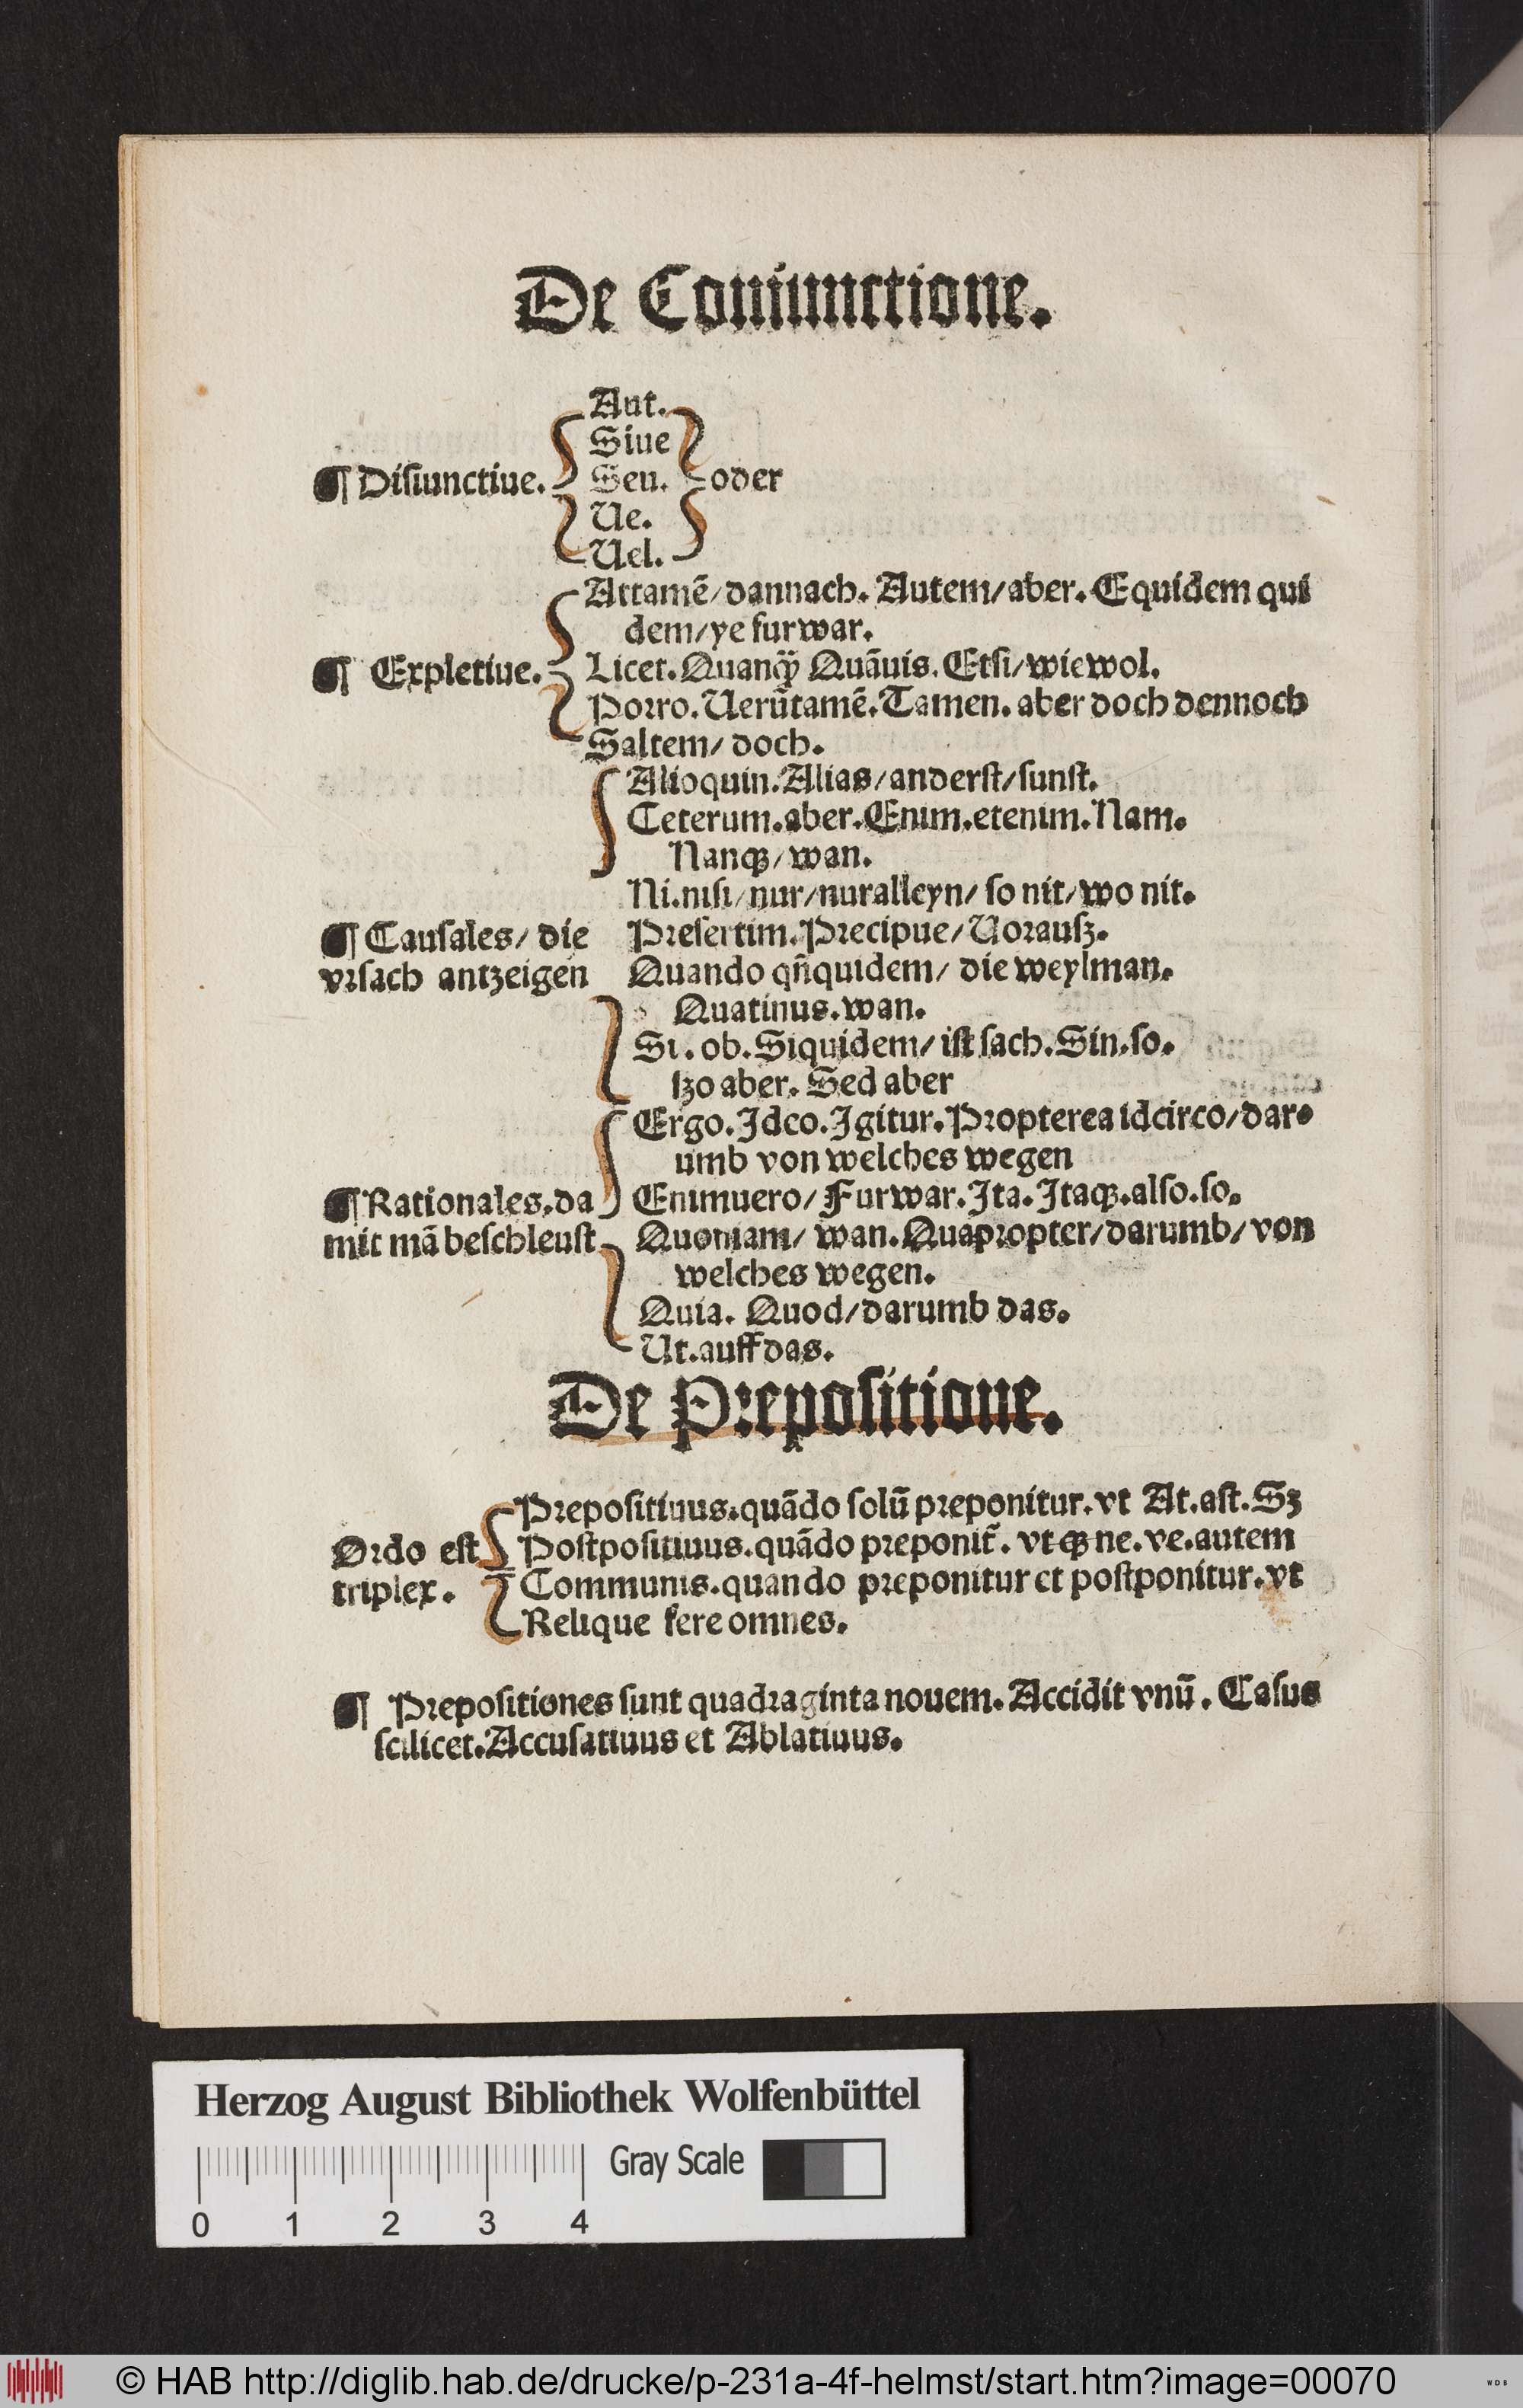 De Coniunctione.
Aut.
Siue
¶ Disiunctiue. Seu. oder
Ue.
Uel.
Attamē/dannach. Autem/aber. Equidem qui
dem/ye furwar.
¶ Expletiue. Licet. Quanqꝫ Quāuis. Etsi/wiewol.
Porro. Uerūtamē. Tamen. aber doch dennoch
Saltem/ doch.
Alioquin. Alias/anderst/sunst.
Ceterum. aber. Enim. etenim. Nam.
Nanqꝫ/wan.
Ni. nisi/nur/nuralleyn/ so nit/wo nit.
¶ Causales/ die Presertim. Precipue/Uorausz.
vrsach antzeigen Quando qn̄quidem/ die weylman.
Quatinus. wan.
Si. ob. Siquidem/ ist sach. Sin. so.
szo aber. Sed aber
Ergo. Ideo. Igitur. Propterea idcirco/dar
umb von welches wegen
¶ Rationales. da Enimuero/ Furwar. Ita. Itaqꝫ. also. so.
mit mā beschleust Quoniam/ wan. Quapropter/darumb/von
welches wegen.
Quia. Quod/darumb das.
Ut. auff das.
De Prepositione.
Prepositiuus. quādo solū preponitur. vt At. ast. Sꝫ
Ordo est Postpositiuus. quādo preponit̄. vt qꝫ ne. ve. autem
triplex. Communis. quando preponitur et postponitur. vt
Relique fere omnes.
¶ Prepositiones sunt quadraginta nouem. Accidit vnū. Casus
scilicet. Accusatiuus et Ablatiuus.
Herzog August Bibliothek Wolfenbüttel
Gray Scale
0 1 2 3 4
© HAB http://diglib.hab.de/drucke/p-231a-4f-helmst/start.htm?image=00070
WDB